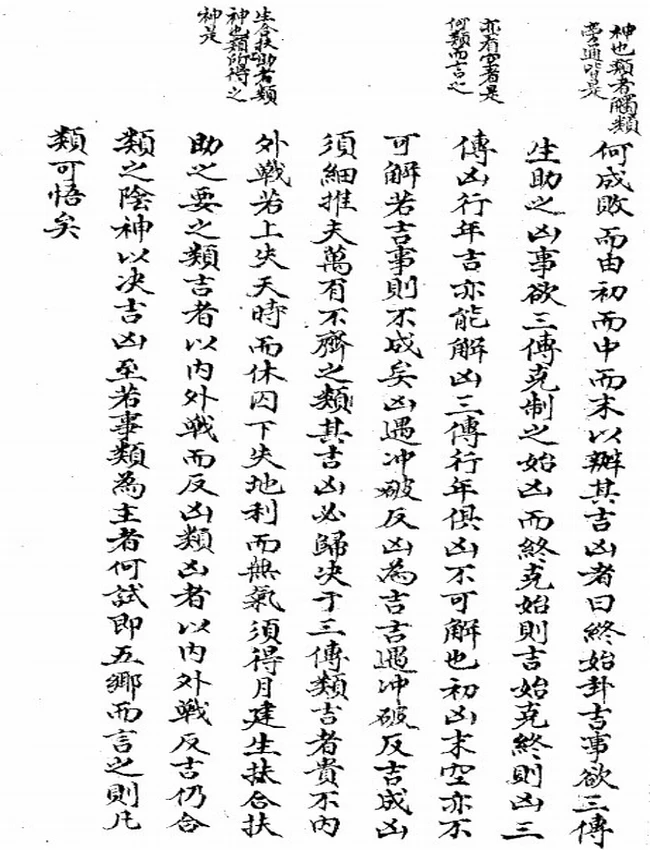 神也類者觸類
旁通皆是
亦有空者是
何類而言之
生合扶助若類
神也類所得之
神是
何成敗而由初而中而末以辨其吉凶者曰終始卦吉事欲三傳
生助之凶事欲三傳克制之始凶而終克始則吉始克終則凶三
傳凶行年吉亦能解凶三傳行年俱凶不可解也初凶末空亦不
可解若吉事則不成矣凶遇冲破反凶為吉吉遇冲破反吉成凶
須細推夫萬有不齊之類其吉凶必歸决于三傳類吉者貴不內
外戰若上失天時而休囚下失地利而無氣須得月建生扶合扶
助之要之類吉者以內外戰而反凶類凶者以內外戰反吉仍合
類之陰神以决吉凶至若事類為主者何試即五鄉而言之則凡
類可悟矣